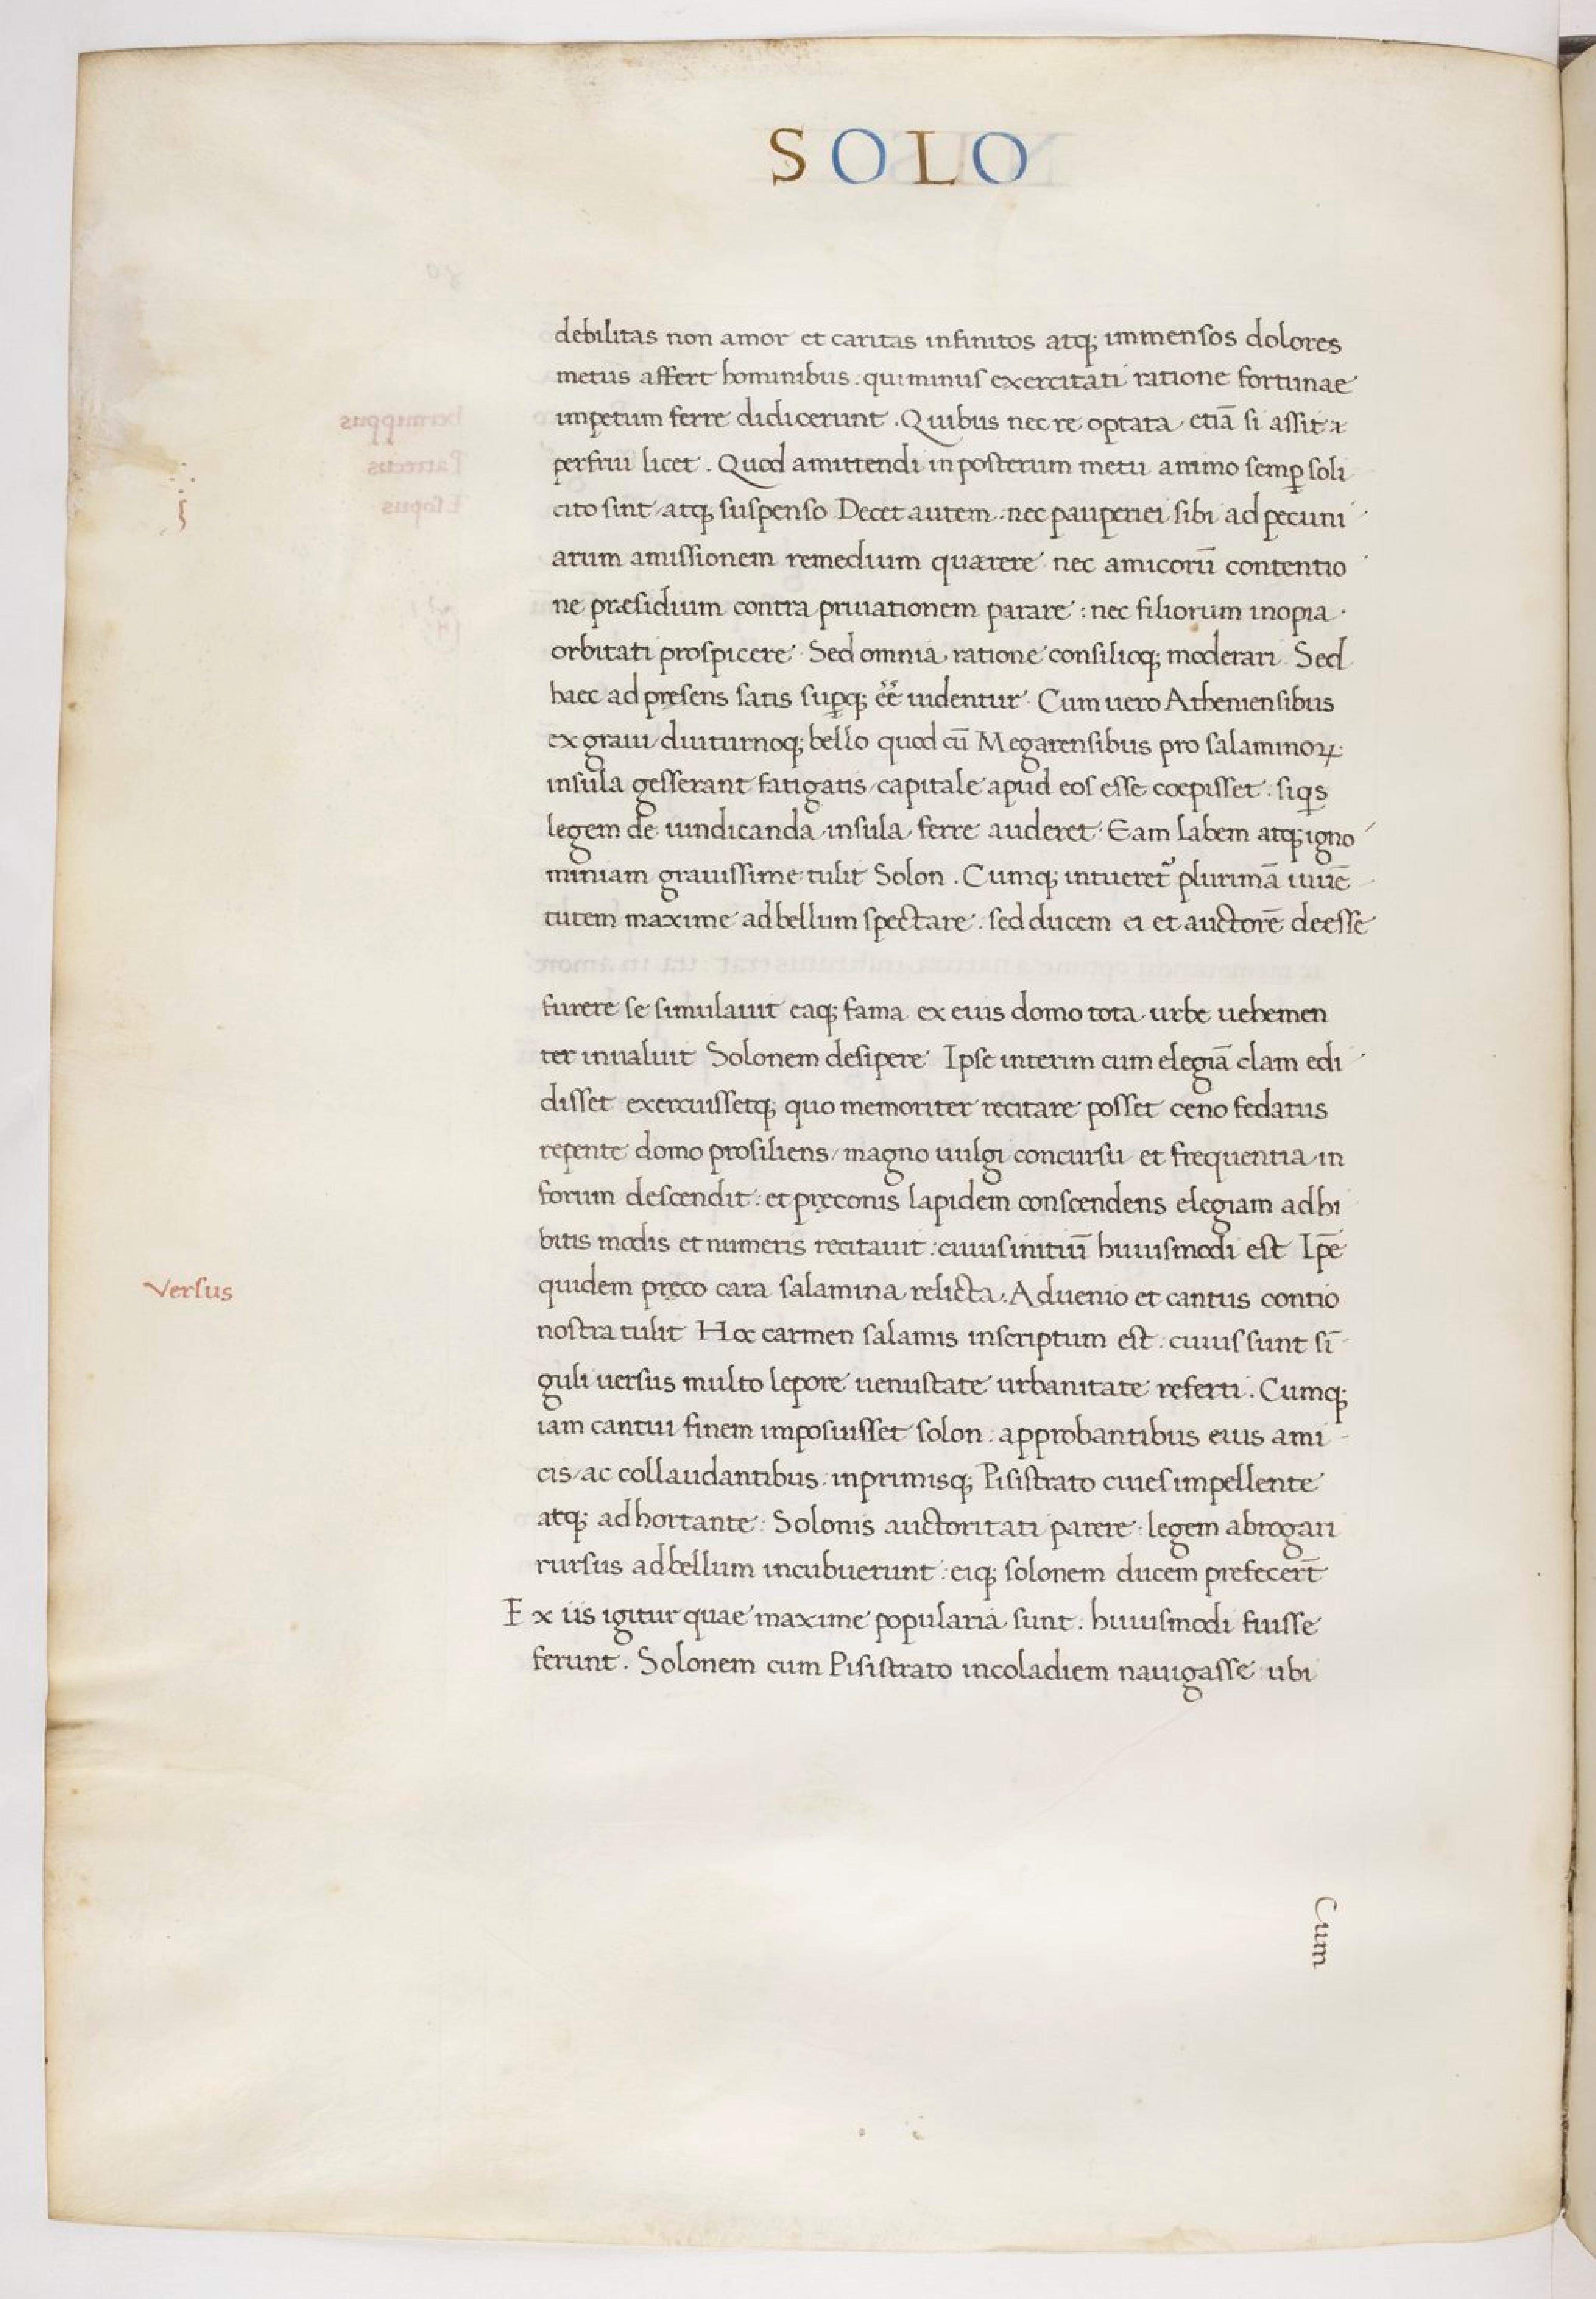 SOLO
debilitas non amor et caritas infinitos atq; immensos dolores
metus affert hominibus. qui minus exercitati ratione fortunae
impetum ferre didicerunt. Quibus nec re optata etiā si assit
perfrui licet. Quod amittendi in posterum metu animo semp̱ soli
cito sint atq; suspenso Decet autem. nec pauperiei sibi ad pecuni
arum amissionem remedium quærere nec amicorū contentio
ne præsidium contra priuationem parare: nec filiorum inopia.
orbitati prospicere Sed omnia ratione consilioq; moderari. Sed
haec ad pręsens satis sup̱q; ēē uidentur. Cum uero Atheniensibus
ex graui diuturnoq; bello quod cū Megarensibus pro salaminoꝝ
insula gesserant fatigatis capitale apud eos esse coepisset. siq̱s
legem de uindicanda insula ferre auderet: Eam labem atq; igno
miniam grauissime tulit Solon. Cumq; intueret᷑ plurimā iuuē
tutem maxime ad bellum spectare. sed ducem ei et auctorē deesse
furere se simulauit eaq; fama ex eius domo tota urbe uehemen
ter inualuit Solonem desipere Ipse interim cum elegiā clam edi
disset exercuissetq; quo memoriter recitare posset ceno fedatus
repente domo prosiliens/ magno uulgi concursu et frequentia in
forum descendit: et pręconis lapidem conscendens elegiam adhi
bitis modis et numeris recitauit: cuius initiū huiusmodi est Ip̄e
quidem pręco cara salamina relicta. Aduenio et cantus contio
Versus
nostra tulit Hoc carmen salamis inscriptum est: cuius sunt sī
guli uersus multo lepore uenustate urbanitate referti. Cumq;
iam cantui finem imposuisset solon: approbantibus eius ami
cis/ ac collaudantibus. inprimisq; Pisistrato ciues impellente
atq; adhortante: Solonis auctoritati parere: legem abrogari
rursus ad bellum incubuerunt: eiq; solonem ducem prefecert̄
Ex iis igitur quae maxime popularia sunt: huiusmodi fuisse
ferunt. Solonem cum Pisistrato incoladiem nauigasse ubi
Cum